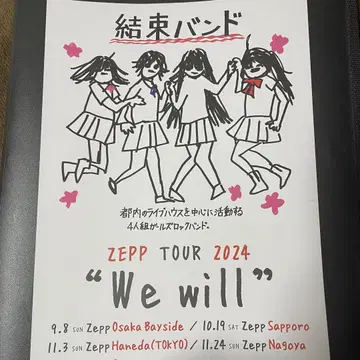 結束バンド
都内のライブハウスを中心に活動する
4人組ガールズロックバンド。
ZEPP TOUR 2024
“We will”
9.8 SUN Zepp Osaka Bayside / 10.19 SAT Zepp Sapporo
11.3 SUN Zepp Haneda(TOKYO) / 11.24 SUN Zepp Nagoya